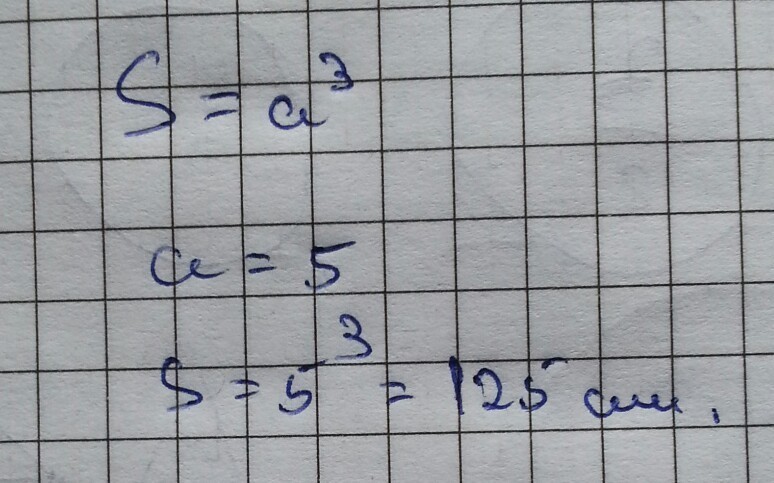 S = a³
a = 5
S = 5³ = 125 см.